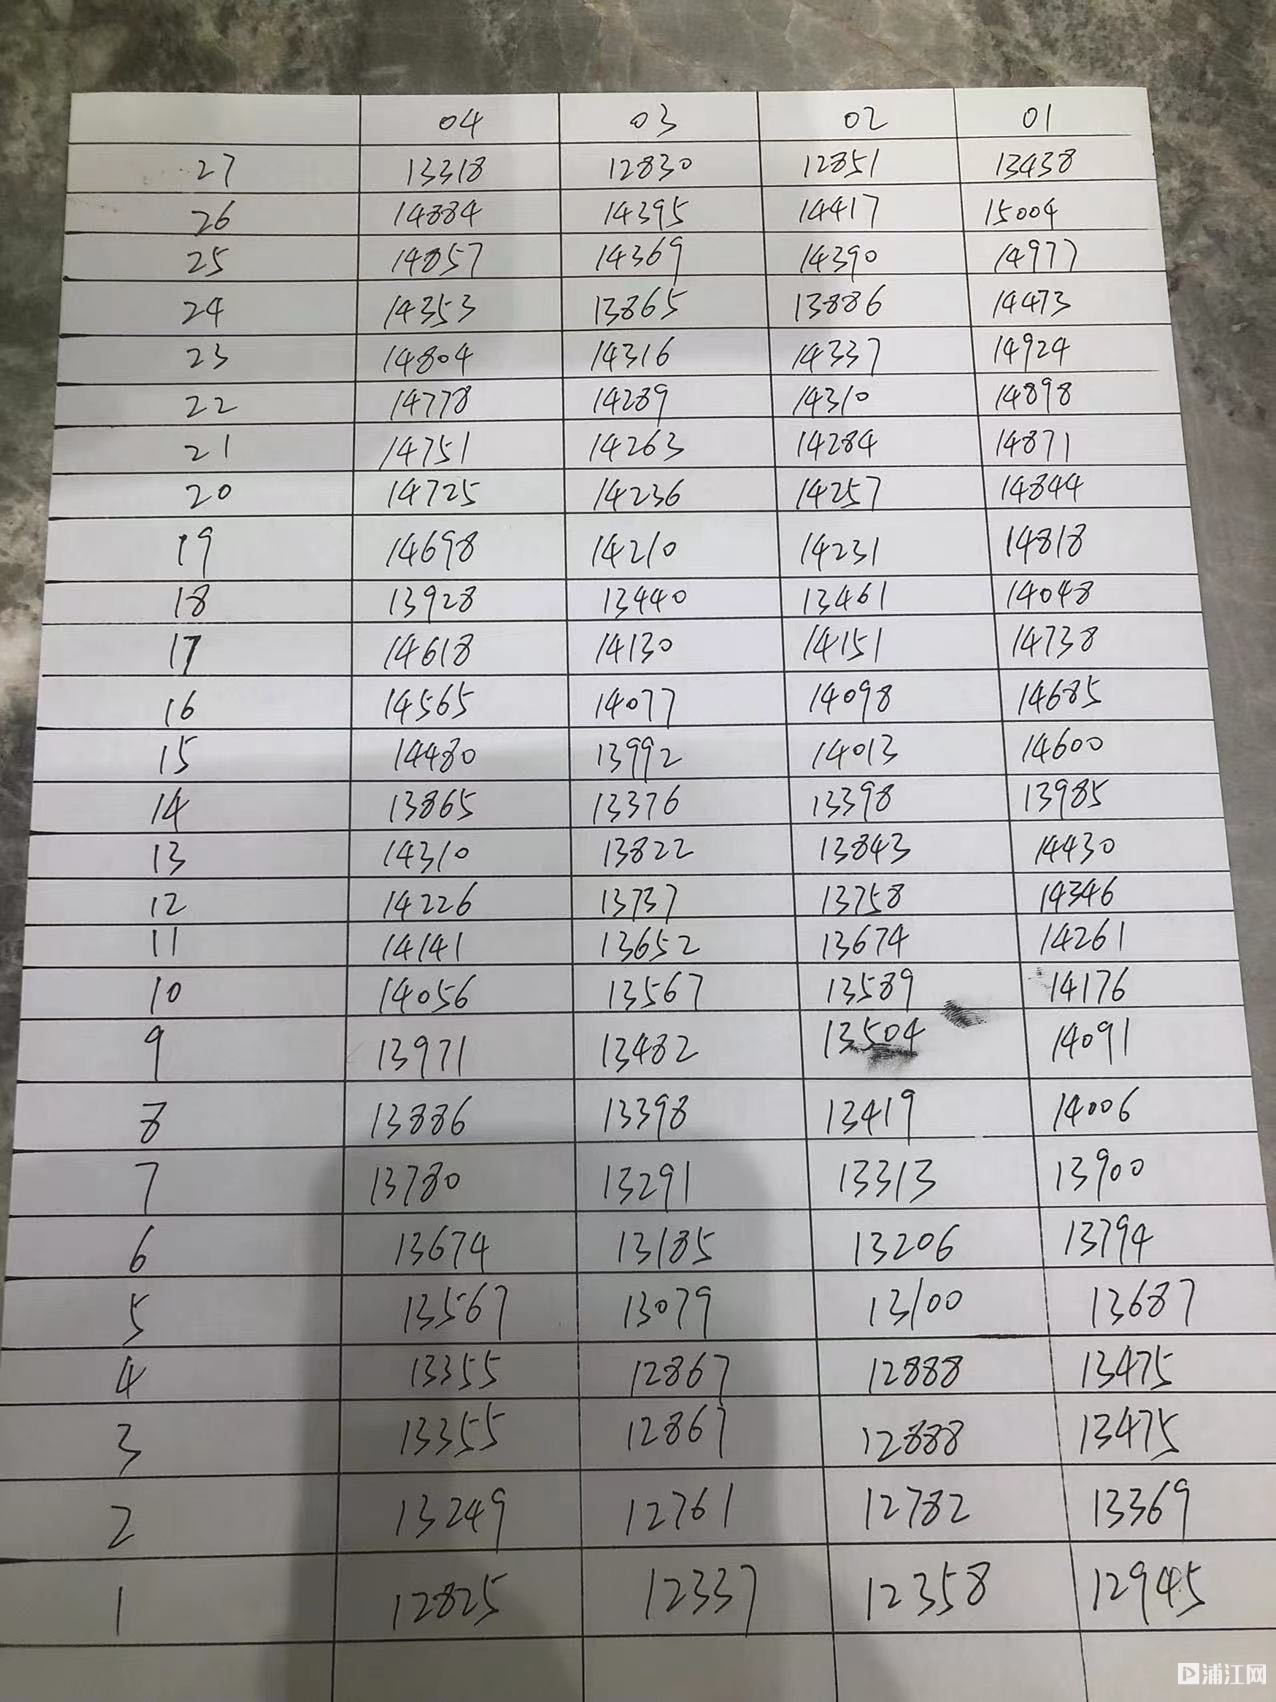 04 03 02 01
27 13318 12830 12851 13438
26 14884 14395 14417 15004
25 14857 14369 14390 14977
24 14353 13865 13886 14473
23 14804 14316 14337 14924
22 14778 14289 14310 14898
21 14751 14263 14284 14871
20 14725 14236 14257 14844
19 14698 14210 14231 14818
18 13928 13440 13461 14048
17 14618 14130 14151 14738
16 14565 14077 14098 14685
15 14480 13992 14013 14600
14 13865 13376 13398 13985
13 14310 13822 13843 14430
12 14226 13737 13758 14346
11 14141 13652 13674 14261
10 14056 13567 13589 14176
9 13971 13482 13504 14091
8 13886 13398 13419 14006
7 13780 13291 13313 13900
6 13674 13185 13206 13794
5 13567 13079 13100 13687
4 13355 12867 12888 13475
3 13355 12867 12888 13475
2 13249 12761 12782 13369
1 12825 12337 12358 12945
浦江网